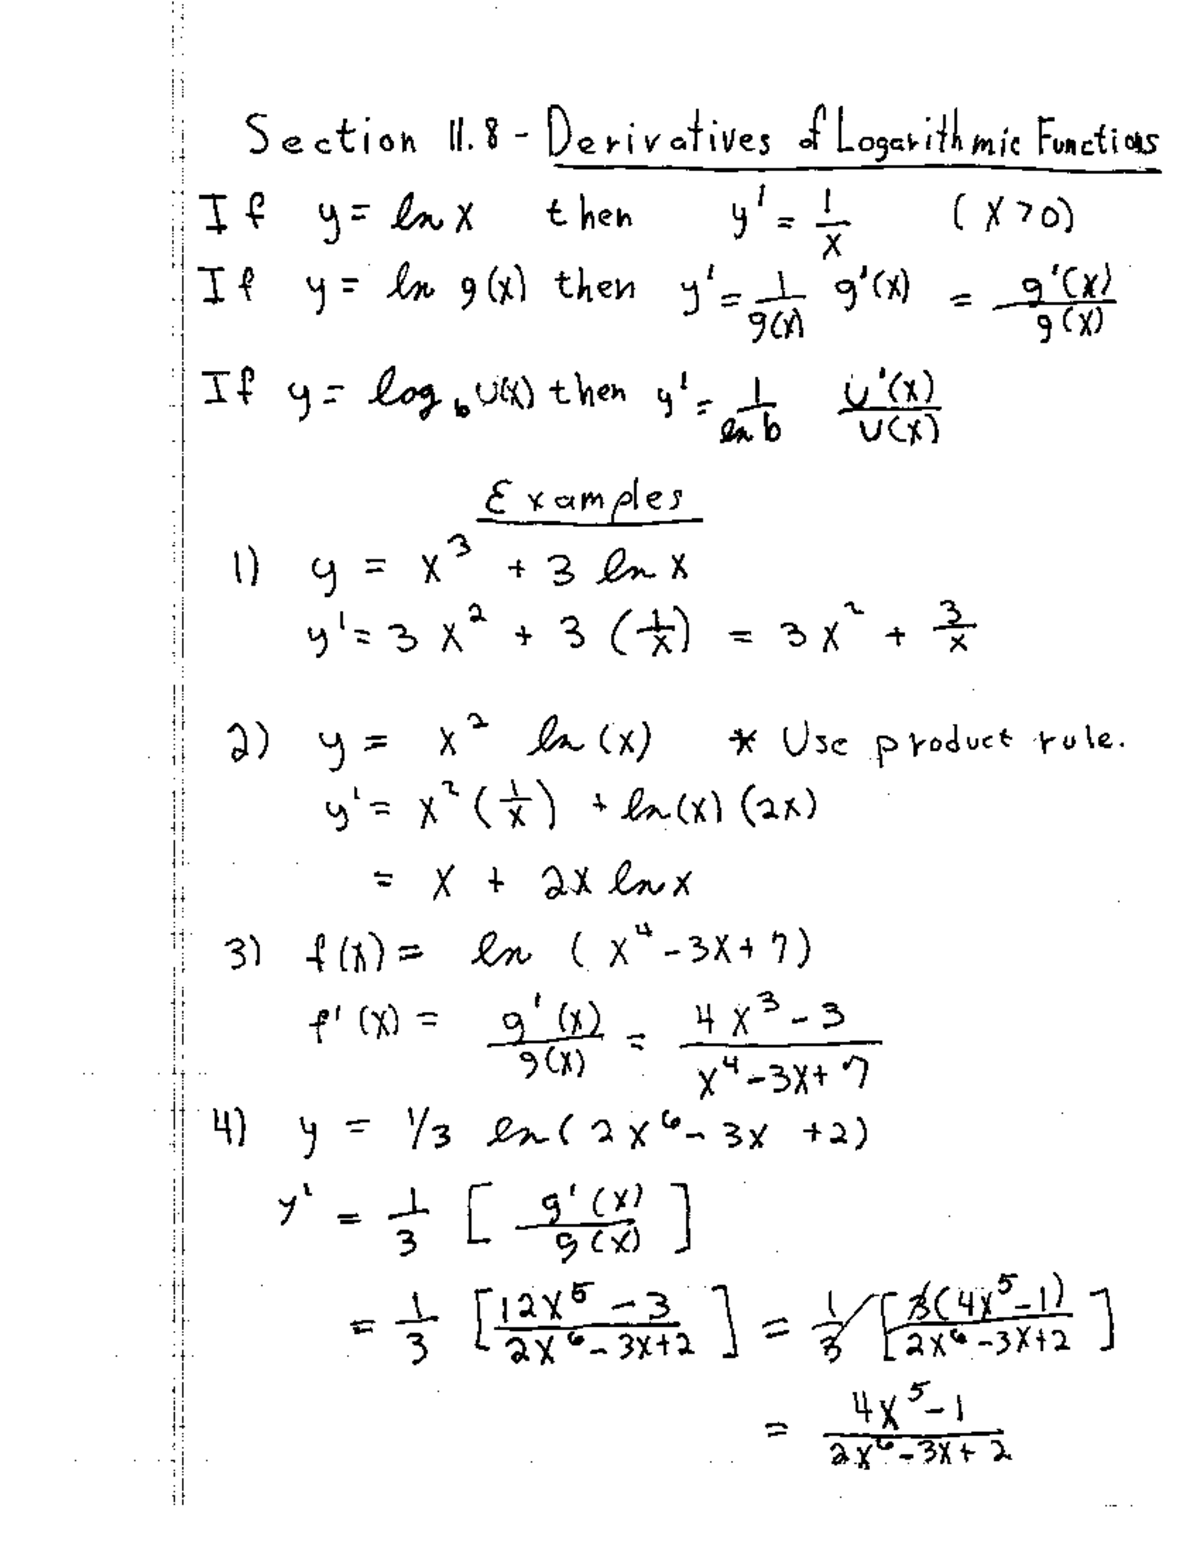 Section 11.8 - Derivatives of Logarithmic Functions
If y = ln x then y' = 1/x (x>0)
If y = ln g(x) then y' = 1/g(x) g'(x) = g'(x)/g(x)
If y = log_b U(x) then y' = 1/ln b U'(x)/U(x)
Examples
1) y = x^3 + 3 ln x
y' = 3x^2 + 3(1/x) = 3x^2 + 3/x
2) y = x^2 ln(x) * Use product rule.
y' = x^2(1/x) + ln(x)(2x)
= x + 2x ln x
3) f(x) = ln(x^4-3x+7)
f'(x) = g'(x)/g(x) = (4x^3-3)/(x^4-3x+7)
4) y = 1/3 ln(2x^6-3x+2)
y' = 1/3 [g'(x)/g(x)]
= 1/3 [(12x^5-3)/(2x^6-3x+2)] = 1/3 [3(4x^5-1)/(2x^6-3x+2)]
= (4x^5-1)/(2x^6-3x+2)